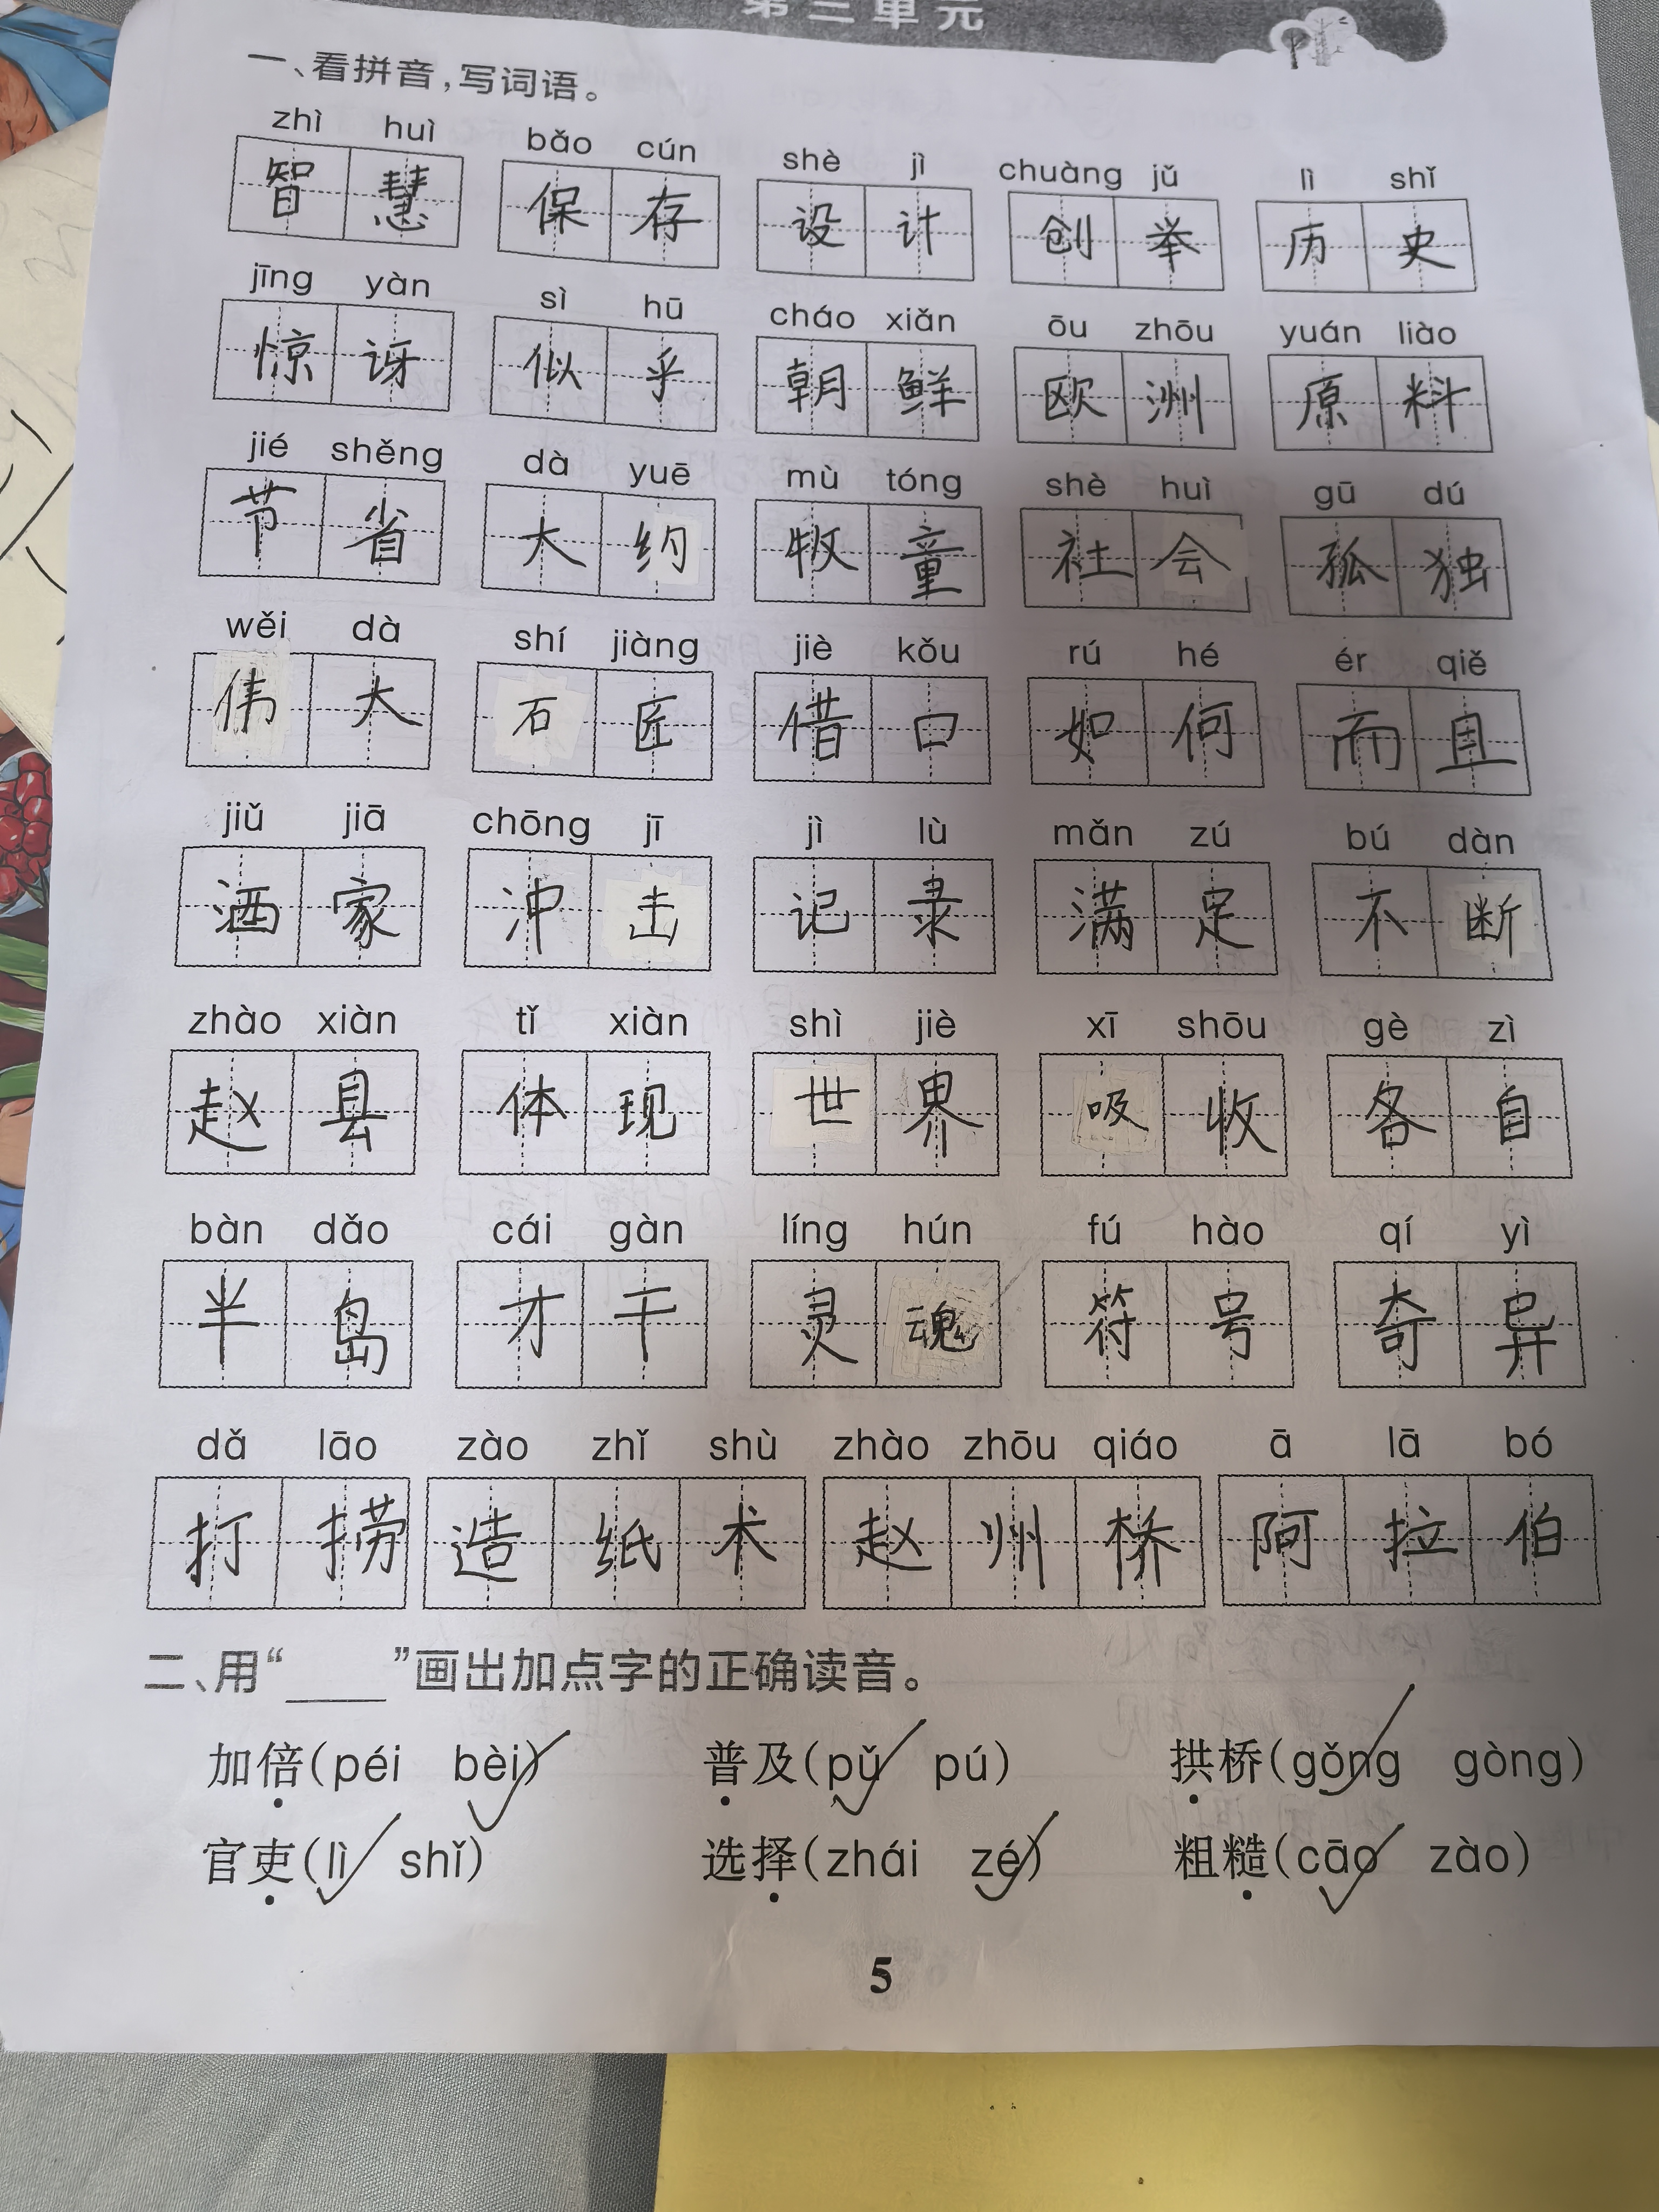 第三单元
一、看拼音,写词语。
zhì huì bǎo cún shè jì chuàng jǔ lì shǐ
智慧 保存 设计 创举 历史
jīng yàn sì hū cháo xiǎn ōu zhōu yuán liào
惊讶 似乎 朝鲜 欧洲 原料
jié shěng dà yuē mù tóng shè huì gū dú
节省 大约 牧童 社会 孤独
wěi dà shí jiàng jiè kǒu rú hé ér qiě
伟大 石匠 借口 如何 而且
jiǔ jiā chōng jī jì lù mǎn zú bú dàn
酒家 冲击 记录 满足 不断
zhào xiàn tǐ xiàn shì jiè xī shōu gè zì
赵县 体现 世界 吸收 各自
bàn dǎo cái gàn líng hún fú hào qí yì
半岛 才干 灵魂 符号 奇异
dǎ lāo zào zhǐ shù zhào zhōu qiáo ā lā bó
打捞 造纸术 赵州桥 阿拉伯
二、用“____”画出加点字的正确读音。
加倍(péi bèi) 普及(pǔ pú) 拱桥(gǒng gòng)
官吏(lì shǐ) 选择(zhái zé) 粗糙(cāo zào)
5